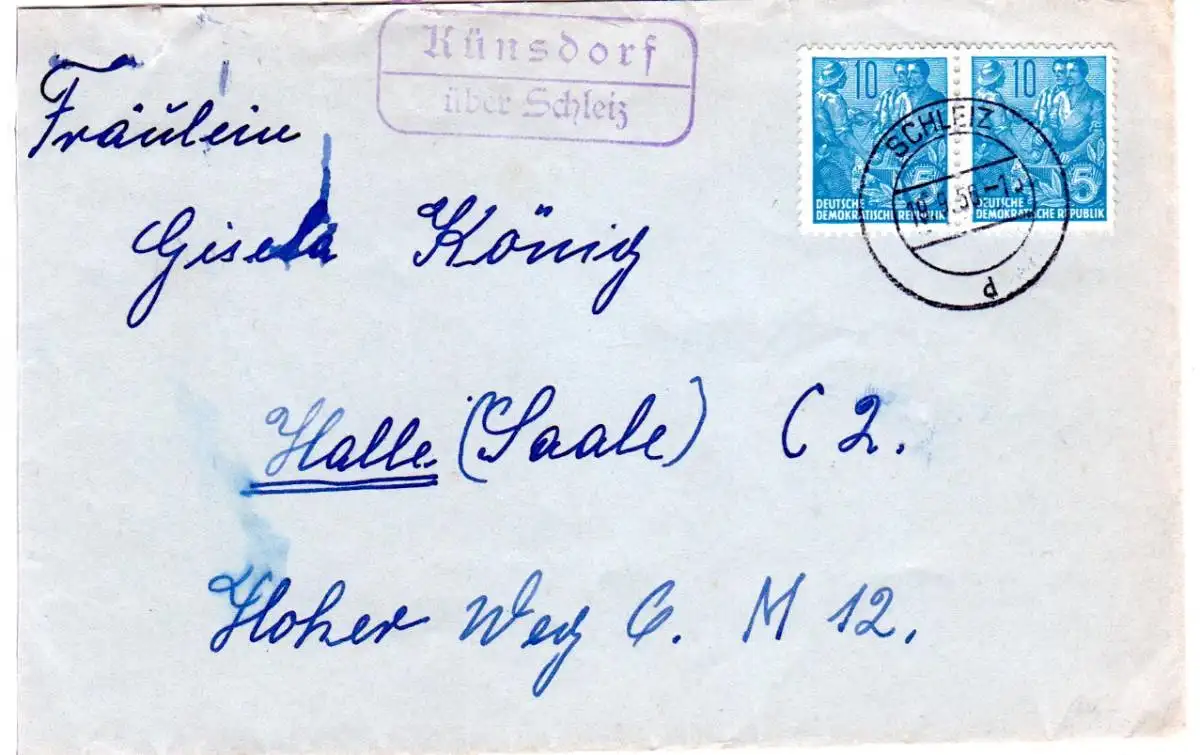 Künsdorf
über Schleiz
10 10
5 5
DEUTSCHE DEMOKRATISCHE REPUBLIK
DEUTSCHE DEMOKRATISCHE REPUBLIK
SCHLEIZ
d
Fräulein
Gisela König
Halle (Saale) C 2.
Hoher Weg 6. M 12.